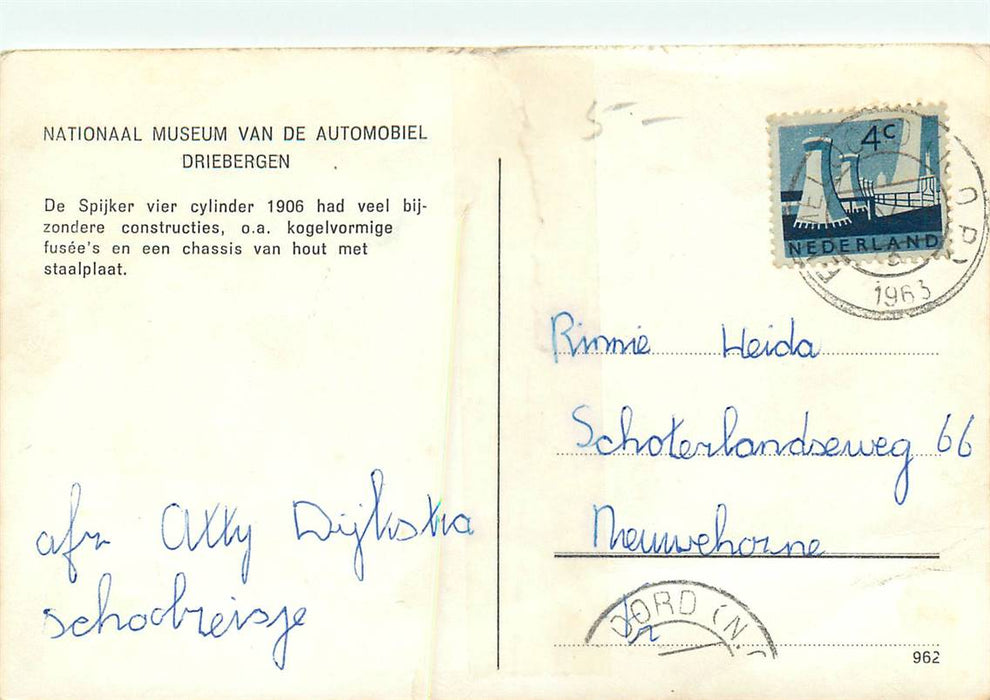 NATIONAAL MUSEUM VAN DE AUTOMOBIEL
DRIEBERGEN
De Spijker vier cylinder 1906 had veel bij-
zondere constructies, o.a. kogelvormige
fusée's en een chassis van hout met
staalplaat.
afz Atty Dijkstra
schoolreisje
5-
4c
NEDERLAND
1963
Rinnie Heida
Schoterlandseweg 66
Nieuwehorne
fr
OORD (N.O
962